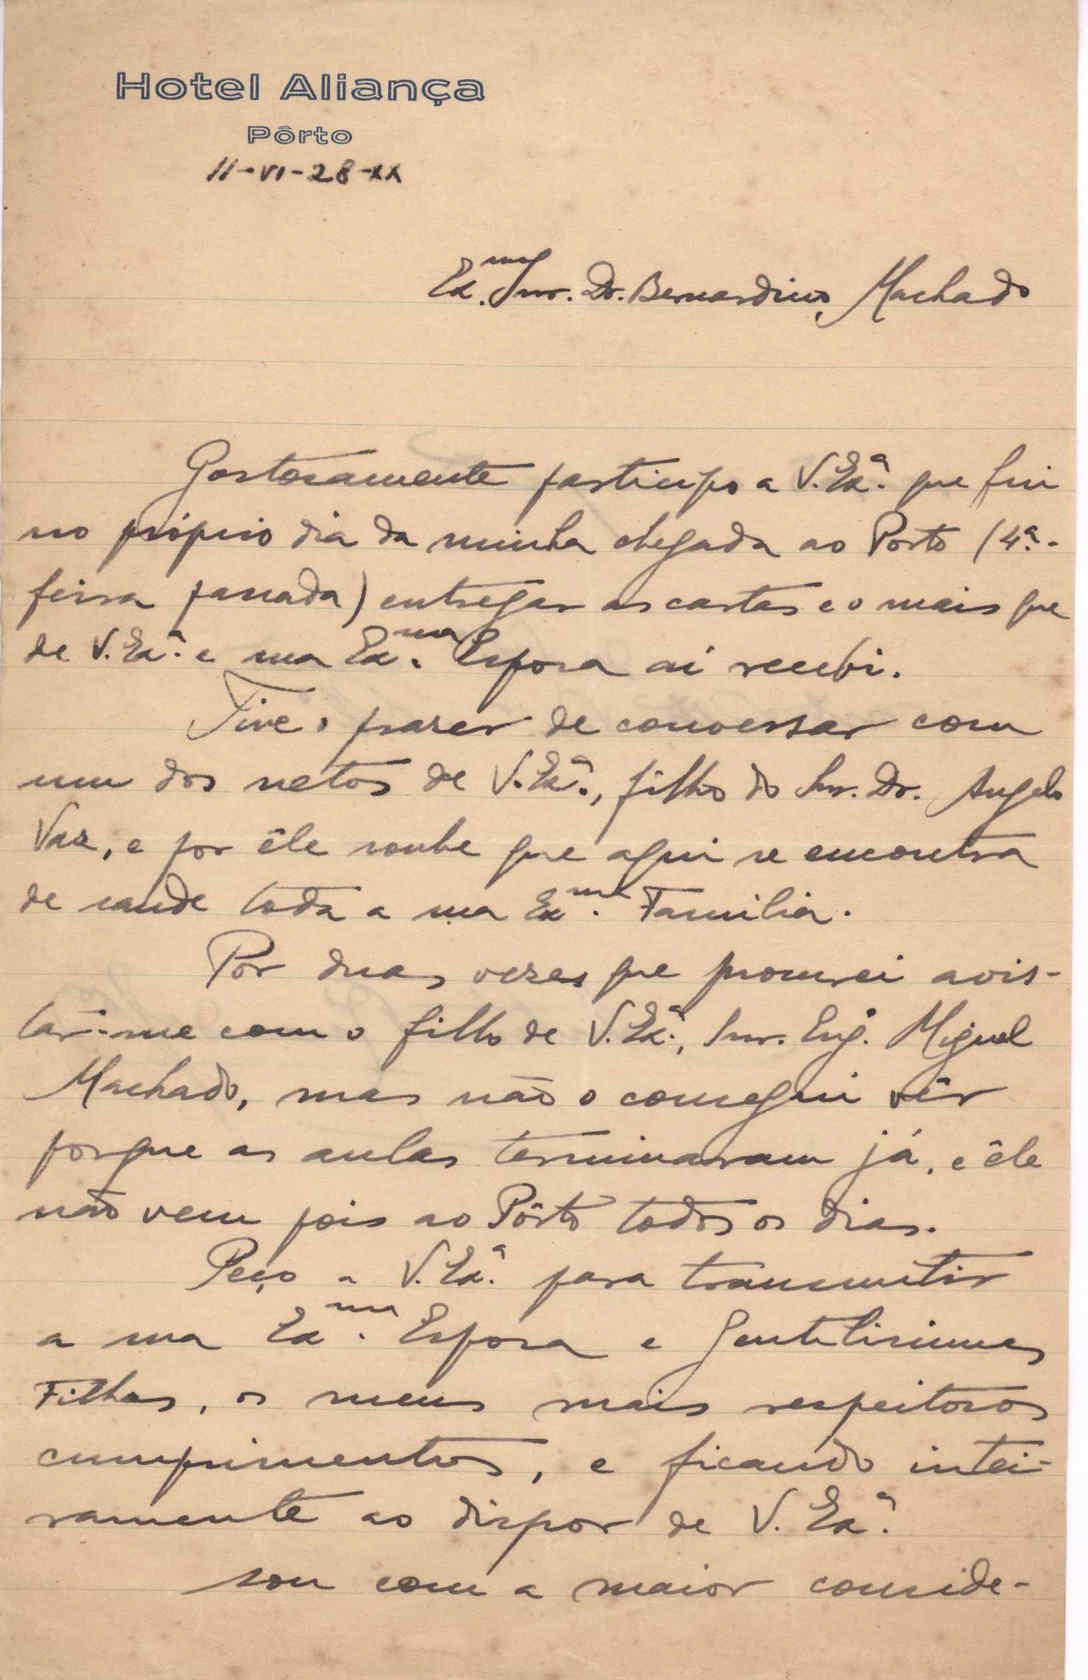 Hotel Aliança
Pôrto
11-VI-28-XX
Exmo. Snr. Dr. Bernardino Machado
Gostosamente participo a V. Exª. que fui
no próprio dia da minha chegada ao Porto (4ª.-
feira passada) entregar as cartas e o mais que
de V. Exª. e sua Exma. Esposa aí recebi.
Tive o prazer de conversar com
um dos netos de V. Exª., filho do Snr. Dr. Angelo
Vaz, e por êle soube que aqui se encontra
de saude toda a sua Exma. Familia.
Por duas vezes que procurei avis-
tar-me com o filho de V. Exª., Snr. Eng. Miguel
Machado, mas não o consegui vêr
porque as aulas terminaram já, e êle
não vem pois ao Pôrto todos os dias.
Peço a V. Exª. para transmitir
a sua Exma. Esposa e Gentilissimas
Filhas, os meus mais respeitosos
cumprimentos, e ficando intei-
ramente ao dispor de V. Exª.
sou com a maior conside-